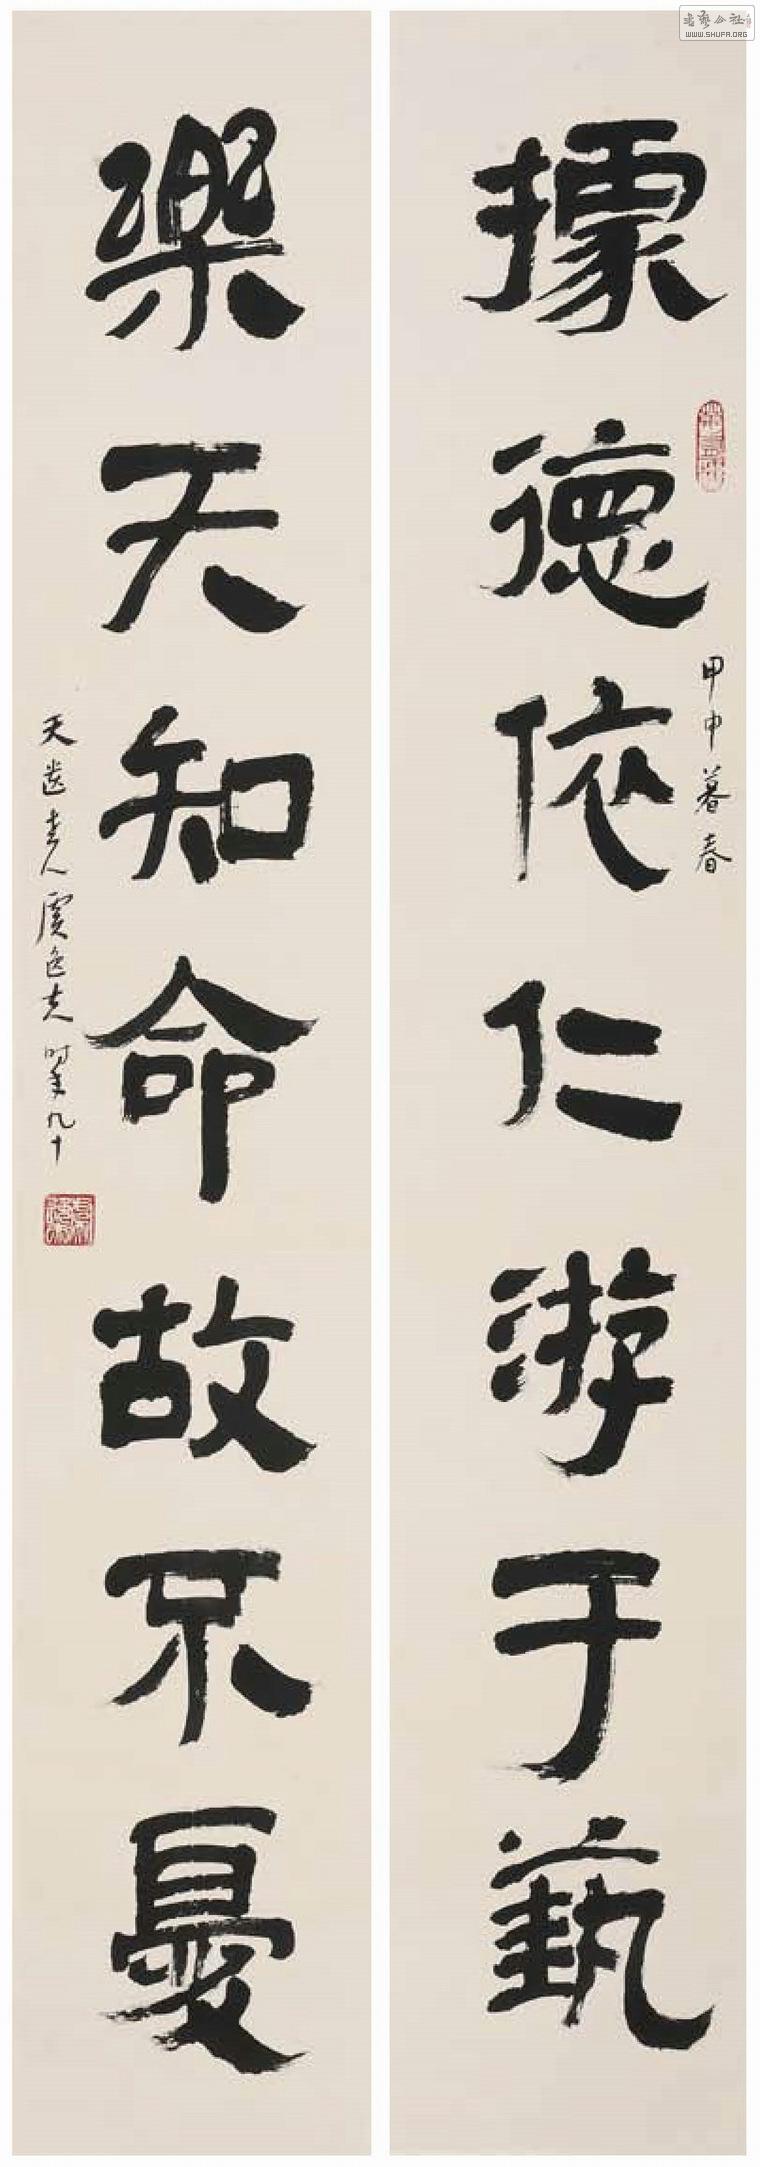 據德依仁游于藝
甲申暮春
樂天知命故不憂
天遊老人虞逸夫时年九十
WWW.SHUFA.ORG